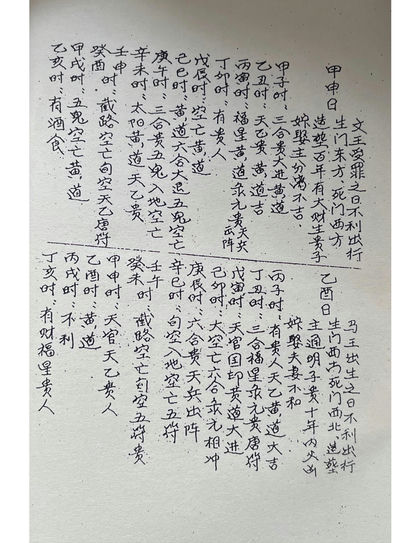 甲申日
文王受罪之日不利出行
生门东方,死门西方
造葬百年有大财生贵子
嫁娶主分离不吉。
甲子时:三合贵大进黄道
乙丑时:天乙贵黄道吉
丙寅时:福星黄道永元贵天兵
丁卯时:有贵人
戊辰时:空亡黄道
己巳时:黄道六合大退五鬼空亡
庚午时:三合贵五鬼入地空亡
辛未时:太阳黄道天乙贵
壬申时:截路空亡
癸酉:截路空亡旬空天乙唐符
甲戌时:五鬼空亡黄道
乙亥时:有酒食
乙酉日
马王出生之日不利出行
生门西南死门西北,造葬
主通明子贵十年内火凶
嫁娶夫妻不和
丙子时:有贵人天乙黄道大吉
丁丑时:三合福星永元贵唐符
戊寅时:天官国印黄道大进
己卯时:大空亡六合永元相冲
庚辰时:六合贵天兵出阵
辛巳时:旬空入地空亡五符
壬午:截路空亡旬空五符贵
癸未时:截路空亡
甲申时:天官天乙贵人
乙酉时:黄道
丙戌时:不利
丁亥时:有财福星贵人